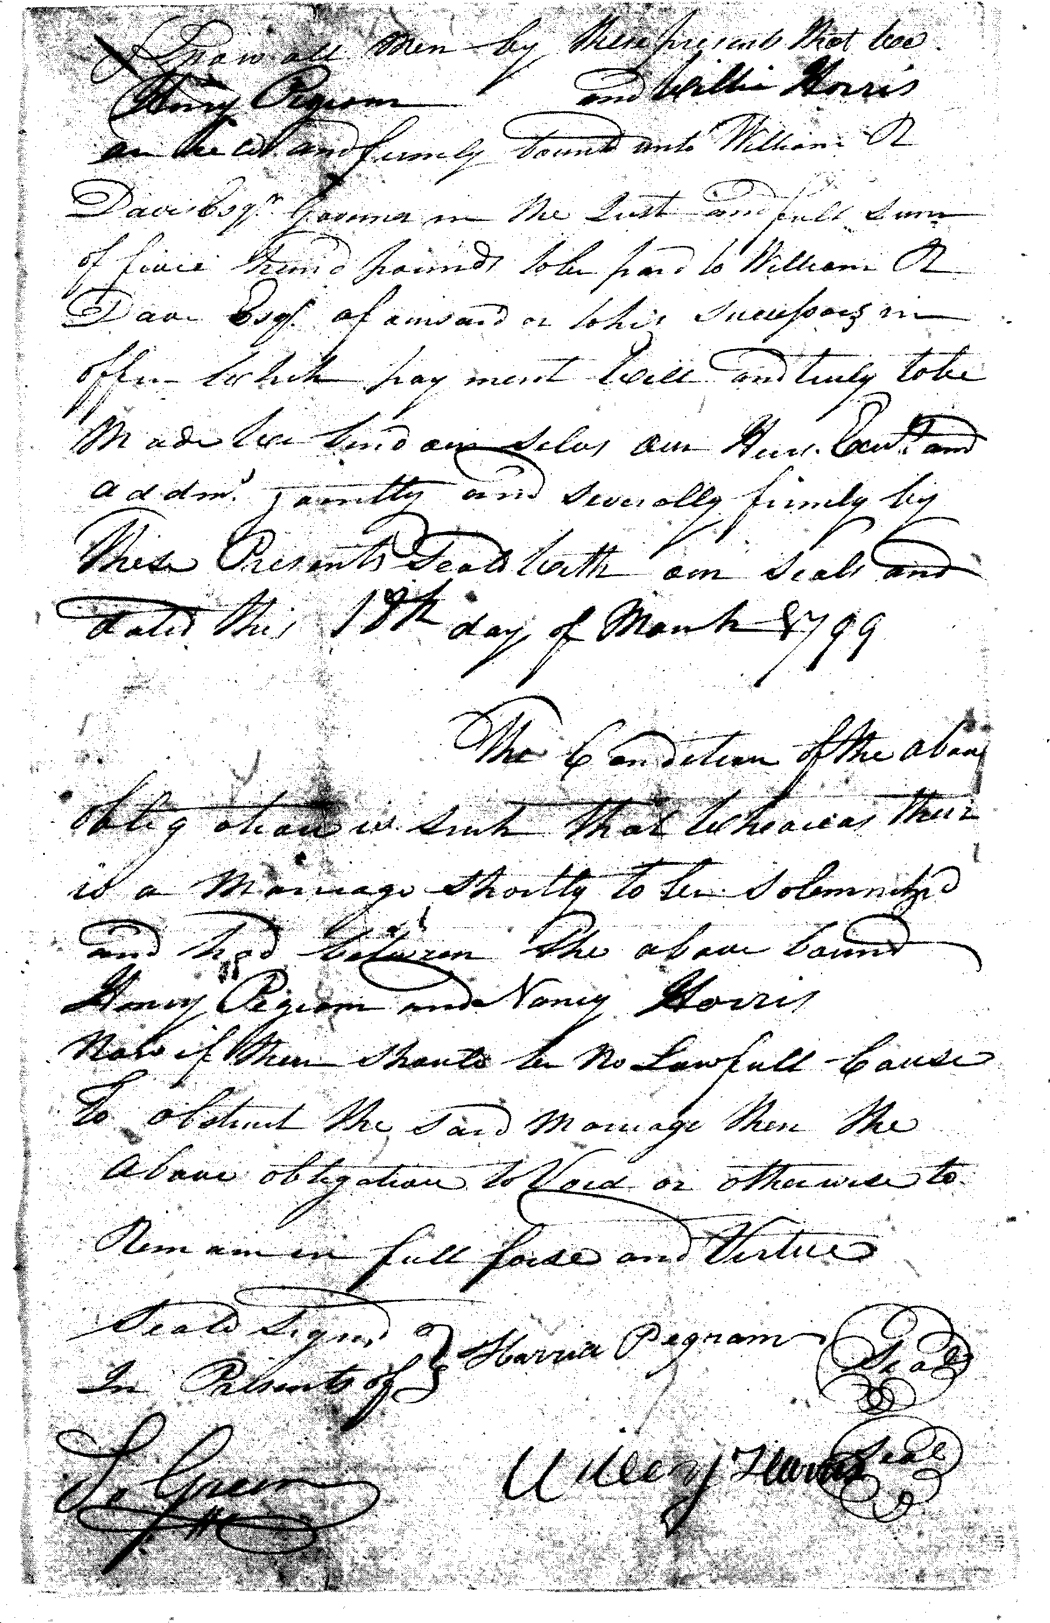 Know all men by these presents that we
Henry Pegram and Willie Horris
are held and firmly bound unto William R
Davie Esqr. Governor in the Just and full sum
of five hund pounds to be paid to William R
Davie Esqr. aforisaid or to his successors in
office which payment will and truly to be
Made we bind our selves our Heirs. Exrs. and
addms. jointly and severally firmly by
These Presents Seald with our seals and
dated this 18th day of March 1799
The Condition of the above
obligation is such that whereas their
is a Marriage shortly to be solemnized
and had between the above bound
Henry Pegram and Nancy Horris
Now if there should be no Lawfull Cause
To obstruct the said marriage then the
Above obligation to Void or otherwise to
Remain in full forse and Virtue
Seald Signed
In Presents of Pegram Seal
S. Green Willey Harris Seal